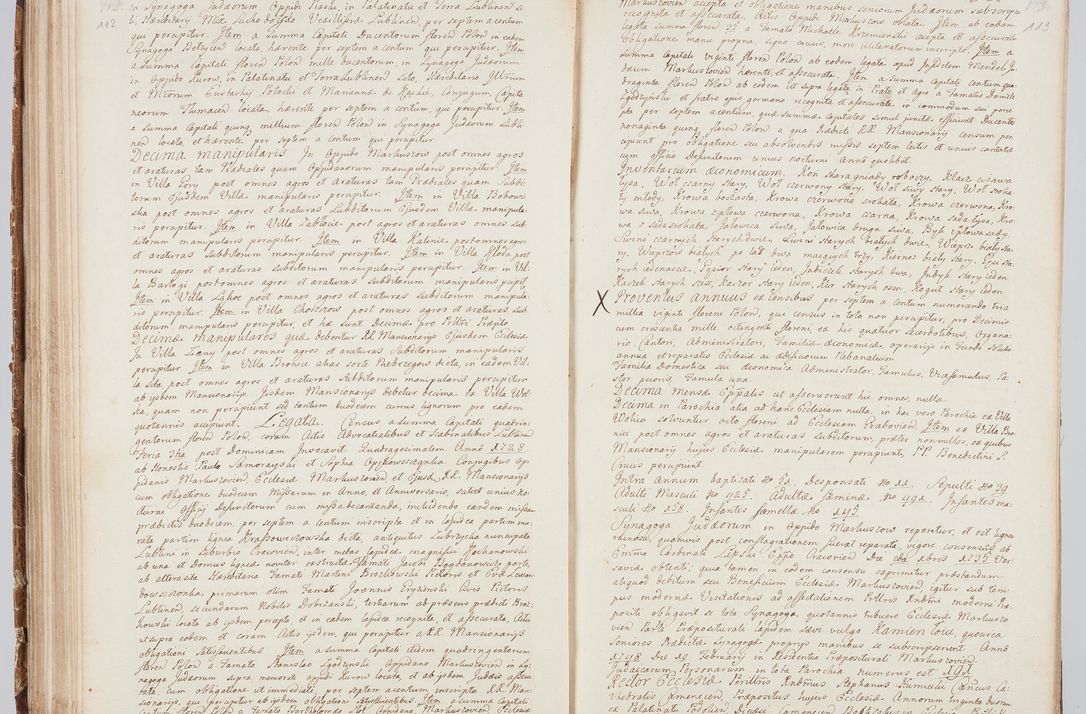 112
in Synagoga Judæorum Oppidi Piaski, in Palatinatu et Terra Lublinen si-
ti, Hæreditarij Mfcæ Suchodolska Vexilliferæ Lublinen, per septem a centum
qui percipitur. Item a summa Capitali Ducentorum floren Polon in eadem
Synagoga Belzycen locata, hærente per septem a centum qui percipitur. Item
a summa Capitali floren Polon mille ducentorum, in Synagoga Judæorum
in Oppido Kurow, in Palatinatu et Terra Lublinen sito, Hæreditario Illtrium
et Mfcorum Eustachij Potocki et Mariannæ de Kąckie, Conjugum, Capita-
neorum Tlumacen locata, hærente per septem a centum, qui percipitur. Item
a summa Capitali quinq millium floren Polon in Synagoga Judæorum Lubli-
nen locata et hærente per septem a centum qui percipitur.
Decima manipularis In Oppido Markuszow post omnes agros
et araturas tam Prædiales quam Oppidanorum manipularis percipitur. Item
in Villa Gory post omnes agros et araturas tam Prædiales quam Subdi-
torum Ejusdem Villæ manipularis percipitur. Item in Villa Bobowi-
ska post omnes agros et araturas Subditorum Ejusdem Villæ manipula-
ris percipitur. Item in Villa Zabłocie post omnes agros et araturas omnes sub-
ditorum manipularis percipitur. Item in Villa Kalinie post omnes agros
et araturas Subditorum manipularis percipitur. Item in Villa Kłoda post
omnes agros et araturas subditorum manipularis percipitur. Item in Vil-
la Bartogi post omnes agros et araturas Subditorum manipularis pcipit.
Item in Villa Łąkoc post omnes agros et araturas Subditorum manipula-
ris percipitur. Item in Villa Choszczow post omnes agros et araturas Sub-
ditorum manipularis percipitur, et hæ sunt Decimæ pro Illtri Præpto.
Decimæ manipulares quæ debentur RR Mansionarijs Ejusdem Ecclesiæ
In Villa Łany post omnes agros et araturas Subditorum manipularis
percipitur. Item in Villa Bronice alias sorte Przbregow dicta, in eadem Vil-
la sita post omnes agros et araturas Subditorum manipularis percipitur
ab ijsdem Mansionarijs. Iisdem Mansionarijs debetur decima ex Villa Wol-
ska, quam non percipiunt sed tantum duodecim currus lignorum pro eadem
quotannis accipiunt. Legata. Census a summa Capitali quadrin-
gentorum floren Polon, coram Actis Advocatialibus et Scabinalibus Lublinen
Feria 3tia post Dominicam Invocavit Quadragesimalem Anno 1728
ab Honestis Paulo Samorayski et Sophia Opejkowszczanka Conjugibus Op-
pidanis Markuszovien, Ecclesiæ Markuszovien et Ejusd. RR. Mansionarijs
cum obligatione duodecim Missarum in Anno, et Anniversario, saltet unius No-
cturni Officij Defunctorum cum missa decantanda, includendo eandem missam
prædictis duodecim, per septem a centum inscripta et in Lapidea partim mu-
rata partim lignea Krassowczowska dicta, antiquitus Lubrzycka nuncupata
Lublini in Suburbio Cracovien, inter metas Lapideæ magnifici Jachanowski
ab una et Domus ligneæ noviter exstructæ Famati Jacobi Bogdanowicz parte,
ab altera sita Hæreditaria Famati Martini Brożkowski Pictoris et Evæ Lewan-
dowszczanka, primarum olim Famati Joannis Erykenski Civis Pictoris
Lublinen, secundarum Nobilis Dobrzanski, tertiarum ab præsens prædicti Broż-
kowski locata ab ijsdem percepta, et in eadem Lapidea recognita, et assecurata, Actis
ut supra eadem et coram Actis ijsdem, qui percipitur a RR. Mansionarijs
obligationi satisfacientibus. Item a summa Capitali itidem quadringentorum
floren Polon a Famato Stanislao Zgodzinski Oppidano Markuszovien in Sy-
nagoga Judæorum supra memorati oppidi Kurow locata, et ab ijsdem Judæis assecu-
rata, cum obligatione ut immediate, per septem a centum inscripta RR. Man-
sionarijs, qui percipitur ab ijsdem obligationi satisfacientibus. Item a summa Capitali
floren Polon a Famato Bartholomæo Kot Oppidano, Markuszovien Ecclesiæ
113
Markuszovien accepta et obligatione manibus Seniorum Judæorum subscripta
recognita et assecurata, Actis Oppidi Markuszow oblata. Item ab eadem
capta summa floreni 95 a Famato Michaele Krzemienski accepta et assecurata
Obligatione manu propria, Signo crucis, more illiteratorum inscripto. Item a
summa Capitali viginti floren Polon ab eodem legata apud Infidelem Mendel Ju-
dæum Markuszovien hærenti, et assecurata. Item a summa Capitali centum qua-
draginta floren Polon ab eodem ut supra legata, in Prato et Agro a Famatis Daniele
Zgodzinski et fratre ejus germano recognita et assecurata in commodum sui perce-
pta per septem a centum, quæ summæ capitales simul junctæ efficiunt Ducentos
nonaginta quinq floren Polon a qua Prædicti RR. Mansionarij censum per-
cipiunt pro obligatione seu absolvendis missis septem lectis et unius cantatæ
cum officio Defunctorum unius nocturni Annò quolibet.
Inventarium Œconomicum. Koń Skaragniady roboczy, Klacz cisawa
łysa, Woł czarny stary, Woł czerwony stary, Woł siwy stary, Woł sroka-
ty młody, Krowa bokasta, Krowa czerwona srokata, Krowa czerwona, Kro-
wa siwa, Krowa zpłowa czerwona, Krowa czarna, Krowa sada łysa, Kro-
wa z sada srokata, Jałowica siwa, Jałowica druga siwa, Byk zpłowa sady,
Swini czarnych starych dwie, Swini starych białych dwie, Wieprz biały sta-
ry, Wieprzow białych po lat dwa maiących trzy, Kiernoz biały stary. Gęsi sta-
rych iedenaście, Gąsior stary ieden, Indyczek starych dwa, Indyk stary ieden
Kaczek starych sześć, Kaczor stary ieden, Kur starych osm, Kogut stary ieden
X Proventus annuus ex Censibus per septem a centum numerando Tria
millia viginti floreni Polon, qui census in toto non percipitur, pro Decimis
cum crescentia mille octingenti floreni, ex his quatuor Sacerdotibus, Organa-
rio, Cantori, Administratori, Familiæ œconomicæ, operarijs in Fundo Salaria
annua et reparatio Ecclesiæ ac ædificiorum Plebanatium
Familia Domestica seu œconomica Administrator, Famulus, Vicefamulus, Pa-
stor pecoris, Famula una.
Decima Mensæ Eppalis ut asservarent his omnes, nulla.
Decima in Parochia alia ad hanc Ecclesiam nulla, in hac vero Parochia ex Villa
Wolica solvuntur octo floreni ad Ecclesiam Grabovien. Item ex Villa Bro-
nice post omnes agros et araturas Subditorum, præter nonnullos, ex quibus
Mansionarij hujus Ecclesiæ manipularem percipiunt, PP. Benedictini S.
Crucis percipiunt.
Intra Annum baptizati No 52. Desponsati No 11. Sepulti No 39
Adulti Masculi No 485. Adultæ fæminæ No 491. Infantes ma-
sculi No 158. Infantes femellæ No 145
Synagoga Judæorum in Oppido Markuszow reperitur, et est lignea
rhinosa, quamvis post conflagrationem fuerat reparata, vigore consensus ab
Emmo Cardinali Lipski Eppo Cracovien Die 2da xbris 1735 Var-
saviæ obtenti; quia tamen in eodem consensu exprimitur præstandum
aliquod debitum seu Beneficium Ecclesiæ Markuszovien, igitur sub tem-
pus modernæ Visitationis ad affectationem Illtris Rndmi moderni Præ-
positi obligavit se tota Synagoga, quotannis tribuere Ecclesiæ Markuszo-
vien Parti Præposituræ Lapidem Sævi vulgo Kamien Łoiu, quocirca
Seniores Prædictæ Synagogæ proprijs manibus se subscripserunt Anno
1748 Die 19 Februarij in Residentia Præpositurali Markuszovien.
Judaicarum Personarum in tota Parochia numerus est 190.
Rector Ecclesiæ Illtris Rndmus Stephanus Rumiński Canonus Ca-
thedralis Camenecen, Præpositus hujus Ecclesiæ, Annorum triginta duorum
ex Palatinatu Podoliæ Dioces Camenecen